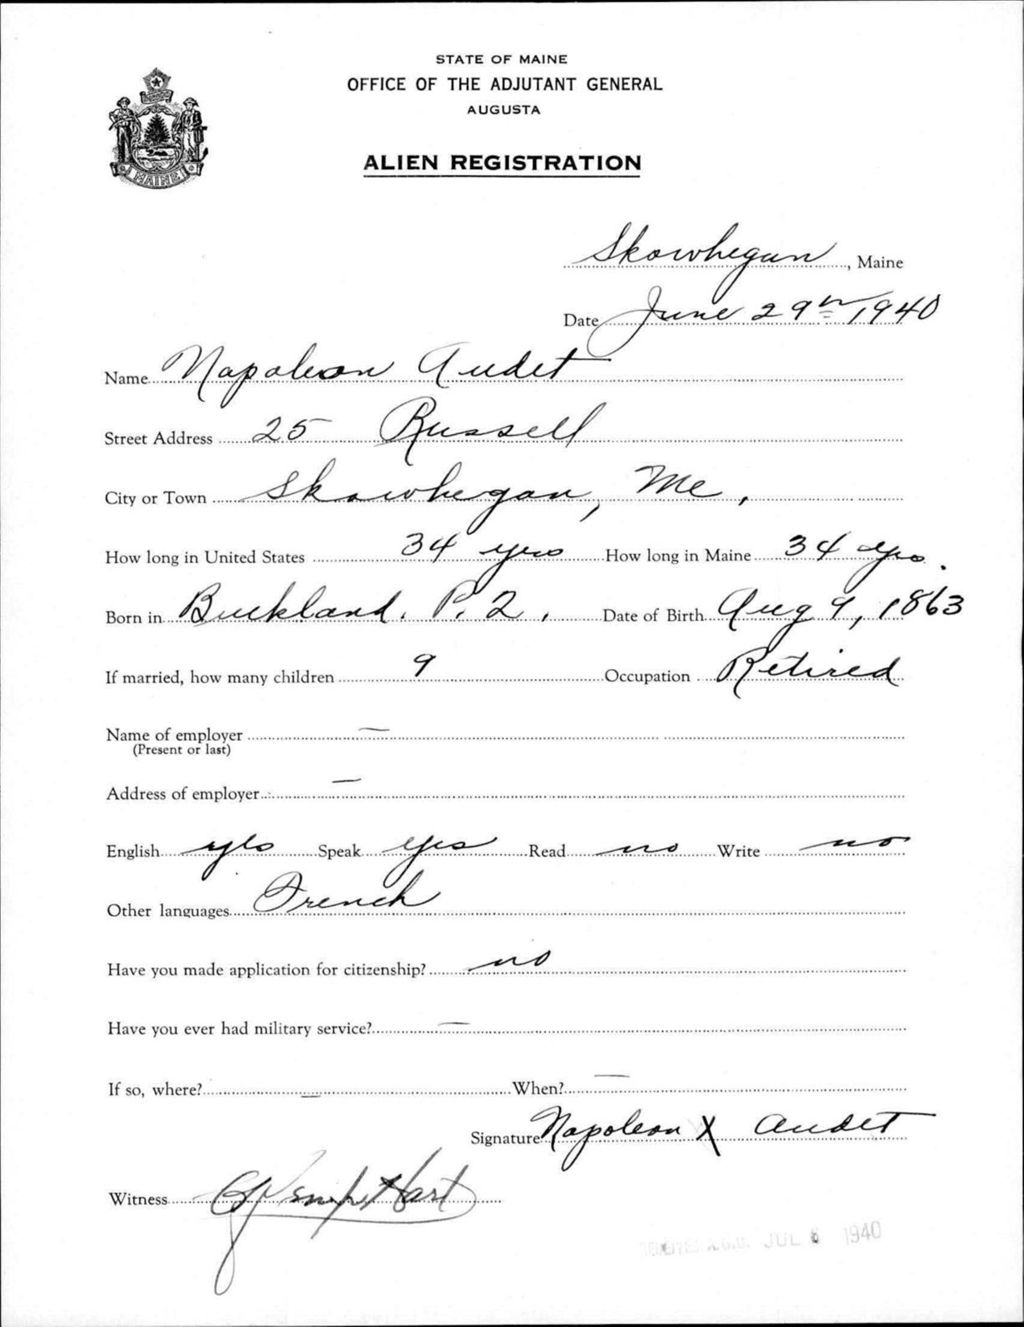 STATE OF MAINE
OFFICE OF THE ADJUTANT GENERAL
AUGUSTA
ALIEN REGISTRATION
MAINE
Skowhegan, Maine
Date June 29th, 1940
Name Napoleon Audet
Street Address 25 Russell
City or Town Skowhegan, Me,
How long in United States 34 yrs How long in Maine 34 yrs.
Born in Buckland, P. Q. Date of Birth Aug 9, 1863
If married, how many children 9 Occupation Retired
Name of employer —
(Present or last)
Address of employer —
English yes Speak yes Read no Write no
Other languages French
Have you made application for citizenship? no
Have you ever had military service? —
If so, where? — When? —
Signature Napoleon X Audet
Witness Hart
JUL 1940